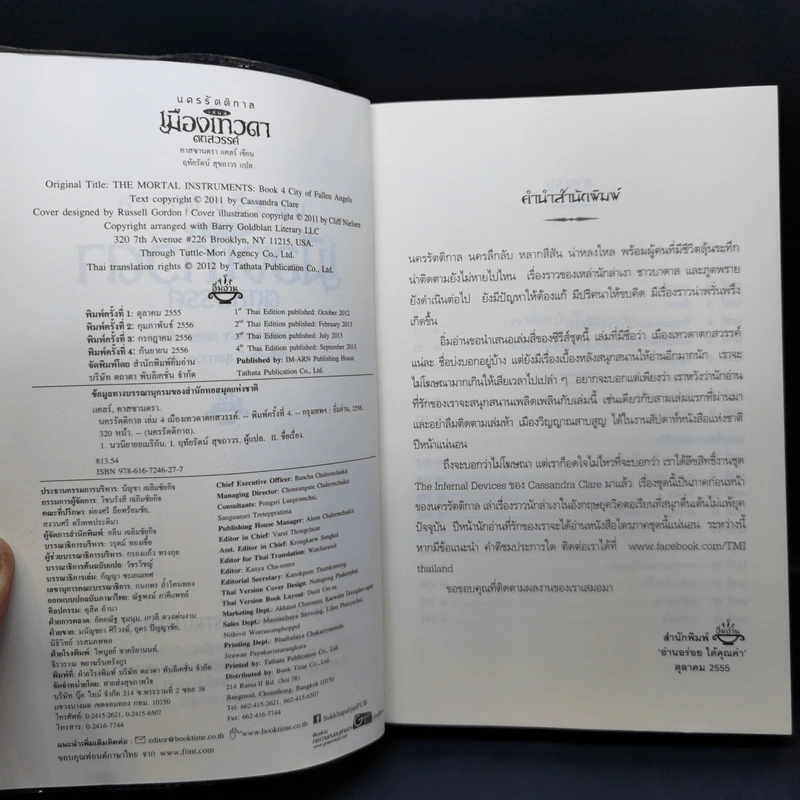 นครรัตติกาล
เมืองเทวดา
ตกสวรรค์
คาสซานดรา แคลร์ เขียน
ฤทัยรัตน์ สุขถาวร แปล
Original Title: THE MORTAL INSTRUMENTS: Book 4 City of Fallen Angels
Text copyright © 2011 by Cassandra Clare
Cover designed by Russell Gordon | Cover illustration copyright © 2011 by Cliff Nielsen
Copyright arranged with Barry Goldblatt Literary LLC
320 7th Avenue #226 Brooklyn, NY 11215, USA.
Through Tuttle-Mori Agency Co., Ltd.
Thai translation rights © 2012 by Tathata Publication Co., Ltd.
อิ่มอ่าน
พิมพ์ครั้งที่ 1: ตุลาคม 2555
พิมพ์ครั้งที่ 2: กุมภาพันธ์ 2556
พิมพ์ครั้งที่ 3: กรกฎาคม 2556
พิมพ์ครั้งที่ 4: กันยายน 2556
จัดพิมพ์โดย สำนักพิมพ์อิ่มอ่าน
บริษัท ตถาตา พับลิเคชั่น จำกัด
1st Thai Edition published: October 2012
2nd Thai Edition published: February 2013
3rd Thai Edition published: July 2013
4th Thai Edition published: September 2013
Published by: IM-ARN Publishing House
Tathata Publication Co., Ltd.
ข้อมูลทางบรรณานุกรมของสำนักหอสมุดแห่งชาติ
แคลร์, คาสซานดรา.
นครรัตติกาล เล่ม 4 เมืองเทวดาตกสวรรค์. – พิมพ์ครั้งที่ 4. – กรุงเทพฯ : อิ่มอ่าน, 2556.
320 หน้า. – (นครรัตติกาล).
1. นวนิยายอเมริกัน. I. ฤทัยรัตน์ สุขถาวร, ผู้แปล. II. ชื่อเรื่อง.
813.54
ISBN 978-616-7246-27-7
ประธานกรรมการบริหาร: บัญชา เฉลิมชัยกิจ
กรรมการผู้จัดการ: โชนรังสี เฉลิมชัยกิจ
คณะที่ปรึกษา: ผ่องศรี ลือพร้อมชัย,
สงวนศรี ตรีเทพประติมา
ผู้จัดการสำนักพิมพ์: อลีน เฉลิมชัยกิจ
บรรณาธิการบริหาร: วรุตม์ ทองเชื้อ
ผู้ช่วยบรรณาธิการบริหาร: กรองแก้ว ทรงกุล
บรรณาธิการต้นฉบับแปล: วัชรวิชญ์
บรรณาธิการเล่ม: กัญญา
เลขานุการกองบรรณาธิการ: กนกพร
ออกแบบปกฉบับภาษาไทย: ณัฐพงษ์
ศิลปกรรม: ดุสิต
ฝ่ายการตลาด: อัคคณัฐ ชุมนุม,
ฝ่ายขาย: มนัญชยา ศิริวงษ์, อุดร ปัญญาชัย,
นิธิวิทย์ วรสมภพพล
ฝ่ายโรงพิมพ์: ไพบูลย์ ชาตรียานนท์,
จีรวรรณ พยานรินทรังกูร
พิมพ์ที่: ฝ่ายโรงพิมพ์ บริษัท ตถาตา พับลิเคชั่น จำกัด
จัดจำหน่ายโดย: สายส่งสุขภาพใจ
บริษัท บุ๊ค ไทม์ จำกัด 214 ซ.พระรามที่ 2 ซอย 38
แขวงบางมด เขตจอมทอง กทม. 10150
โทรศัพท์: 0-2415-2621, 0-2415-6507
โทรสาร: 0-2416-7744
Chief Executive Officer: Bancha Chalermchaikit
Managing Director: Choorungsee Chalermchaikit
Consultants: Pongsri Luepromchai,
Sanguansri Treteppratima
Publishing House Manager: Aleen Chalermchaikit
Editor in Chief: Varut Thongchuue
Asst. Editor in Chief: Krongkaew Songkul
Editor for Thai Translation: Watcharawit
Editor: Kanya
Editorial Secretary: Kanokporn
Thai Version Cover Design: Nuttapong
Thai Version Book Layout: Dusit
Marketing Dept.: Akkanat Chumnum,
Sales Dept.: Mananchaya Siriwong, Udon Panyachai,
Nithivit Worrasomphoppol
Printing Dept.: Bhaibulaya Chakariyanonte,
Jirawan Payakarintarangkura
Printed at: Tathata Publication Co., Ltd.
Distributed by: Book Time Co., Ltd.
214 Rama II Rd. (Soi 38)
Bangmod, Chomthong, Bangkok 10150
Tel: 662-415-2621, 662-415-6507
Fax: 662-416-7744
แนะนำเพิ่มเติมติดต่อ : editor@booktime.co.th www.booktime.co.th SukkhapabjaiPUB
ขอบคุณฟอนต์ภาษาไทย จาก www.f0nt.com
คำนำสำนักพิมพ์
นครรัตติกาล นครลึกลับ หลากสีสัน น่าหลงใหล พร้อมผู้คนที่มีชีวิตลุ้นระทึก
น่าติดตามยังไม่หายไปไหน เรื่องราวของเหล่านักล่าเงา ชาวบาดาล และภูตพราย
ยังดำเนินต่อไป ยังมีปัญหาให้ต้องแก้ มีปริศนาให้ขบคิด มีเรื่องราวน่าพรั่นพรึง
เกิดขึ้น
อิ่มอ่านขอนำเสนอเล่มสี่ของซีรีส์ชุดนี้ เล่มที่มีชื่อว่า เมืองเทวดาตกสวรรค์
แน่ละ ชื่อบ่งบอกอยู่บ้าง แต่ยังมีเรื่องเบื้องหลังสนุกสนานให้อ่านอีกมากนัก เราจะ
ไม่โฆษณามากเกินให้เสียเวลาไปเปล่า ๆ อยากจะบอกแต่เพียงว่า เราหวังว่านักอ่าน
ที่รักของเราจะสนุกสนานเพลิดเพลินกับเล่มนี้ เช่นเดียวกับสามเล่มแรกที่ผ่านมา
และอย่าลืมติดตามเล่มห้า เมืองวิญญาณสาบสูญ ได้ในงานสัปดาห์หนังสือแห่งชาติ
ปีหน้าแน่นอน
ถึงจะบอกว่าไม่โฆษณา แต่เราก็อดใจไม่ไหวที่จะบอกว่า เราได้ลิขสิทธิ์งานชุด
The Infernal Devices ของ Cassandra Clare มาแล้ว เรื่องชุดนี้เป็นภาคก่อนหน้า
ของนครรัตติกาล เล่าเรื่องราวนักล่าเงาในอังกฤษยุควิคตอเรียนที่สนุกตื่นเต้นไม่แพ้ยุค
ปัจจุบัน ปีหน้านักอ่านที่รักของเราจะได้อ่านหนังสือไตรภาคชุดนี้แน่นอน ระหว่างนี้
หากมีข้อแนะนำ คำติชมประการใด ติดต่อเราได้ที่ www.facebook.com/TMI
thailand
ขอขอบคุณที่ติดตามผลงานของเราเสมอมา
สำนักพิมพ์ อิ่มอ่าน
'อ่านอร่อย ได้คุณค่า'
ตุลาคม 2555